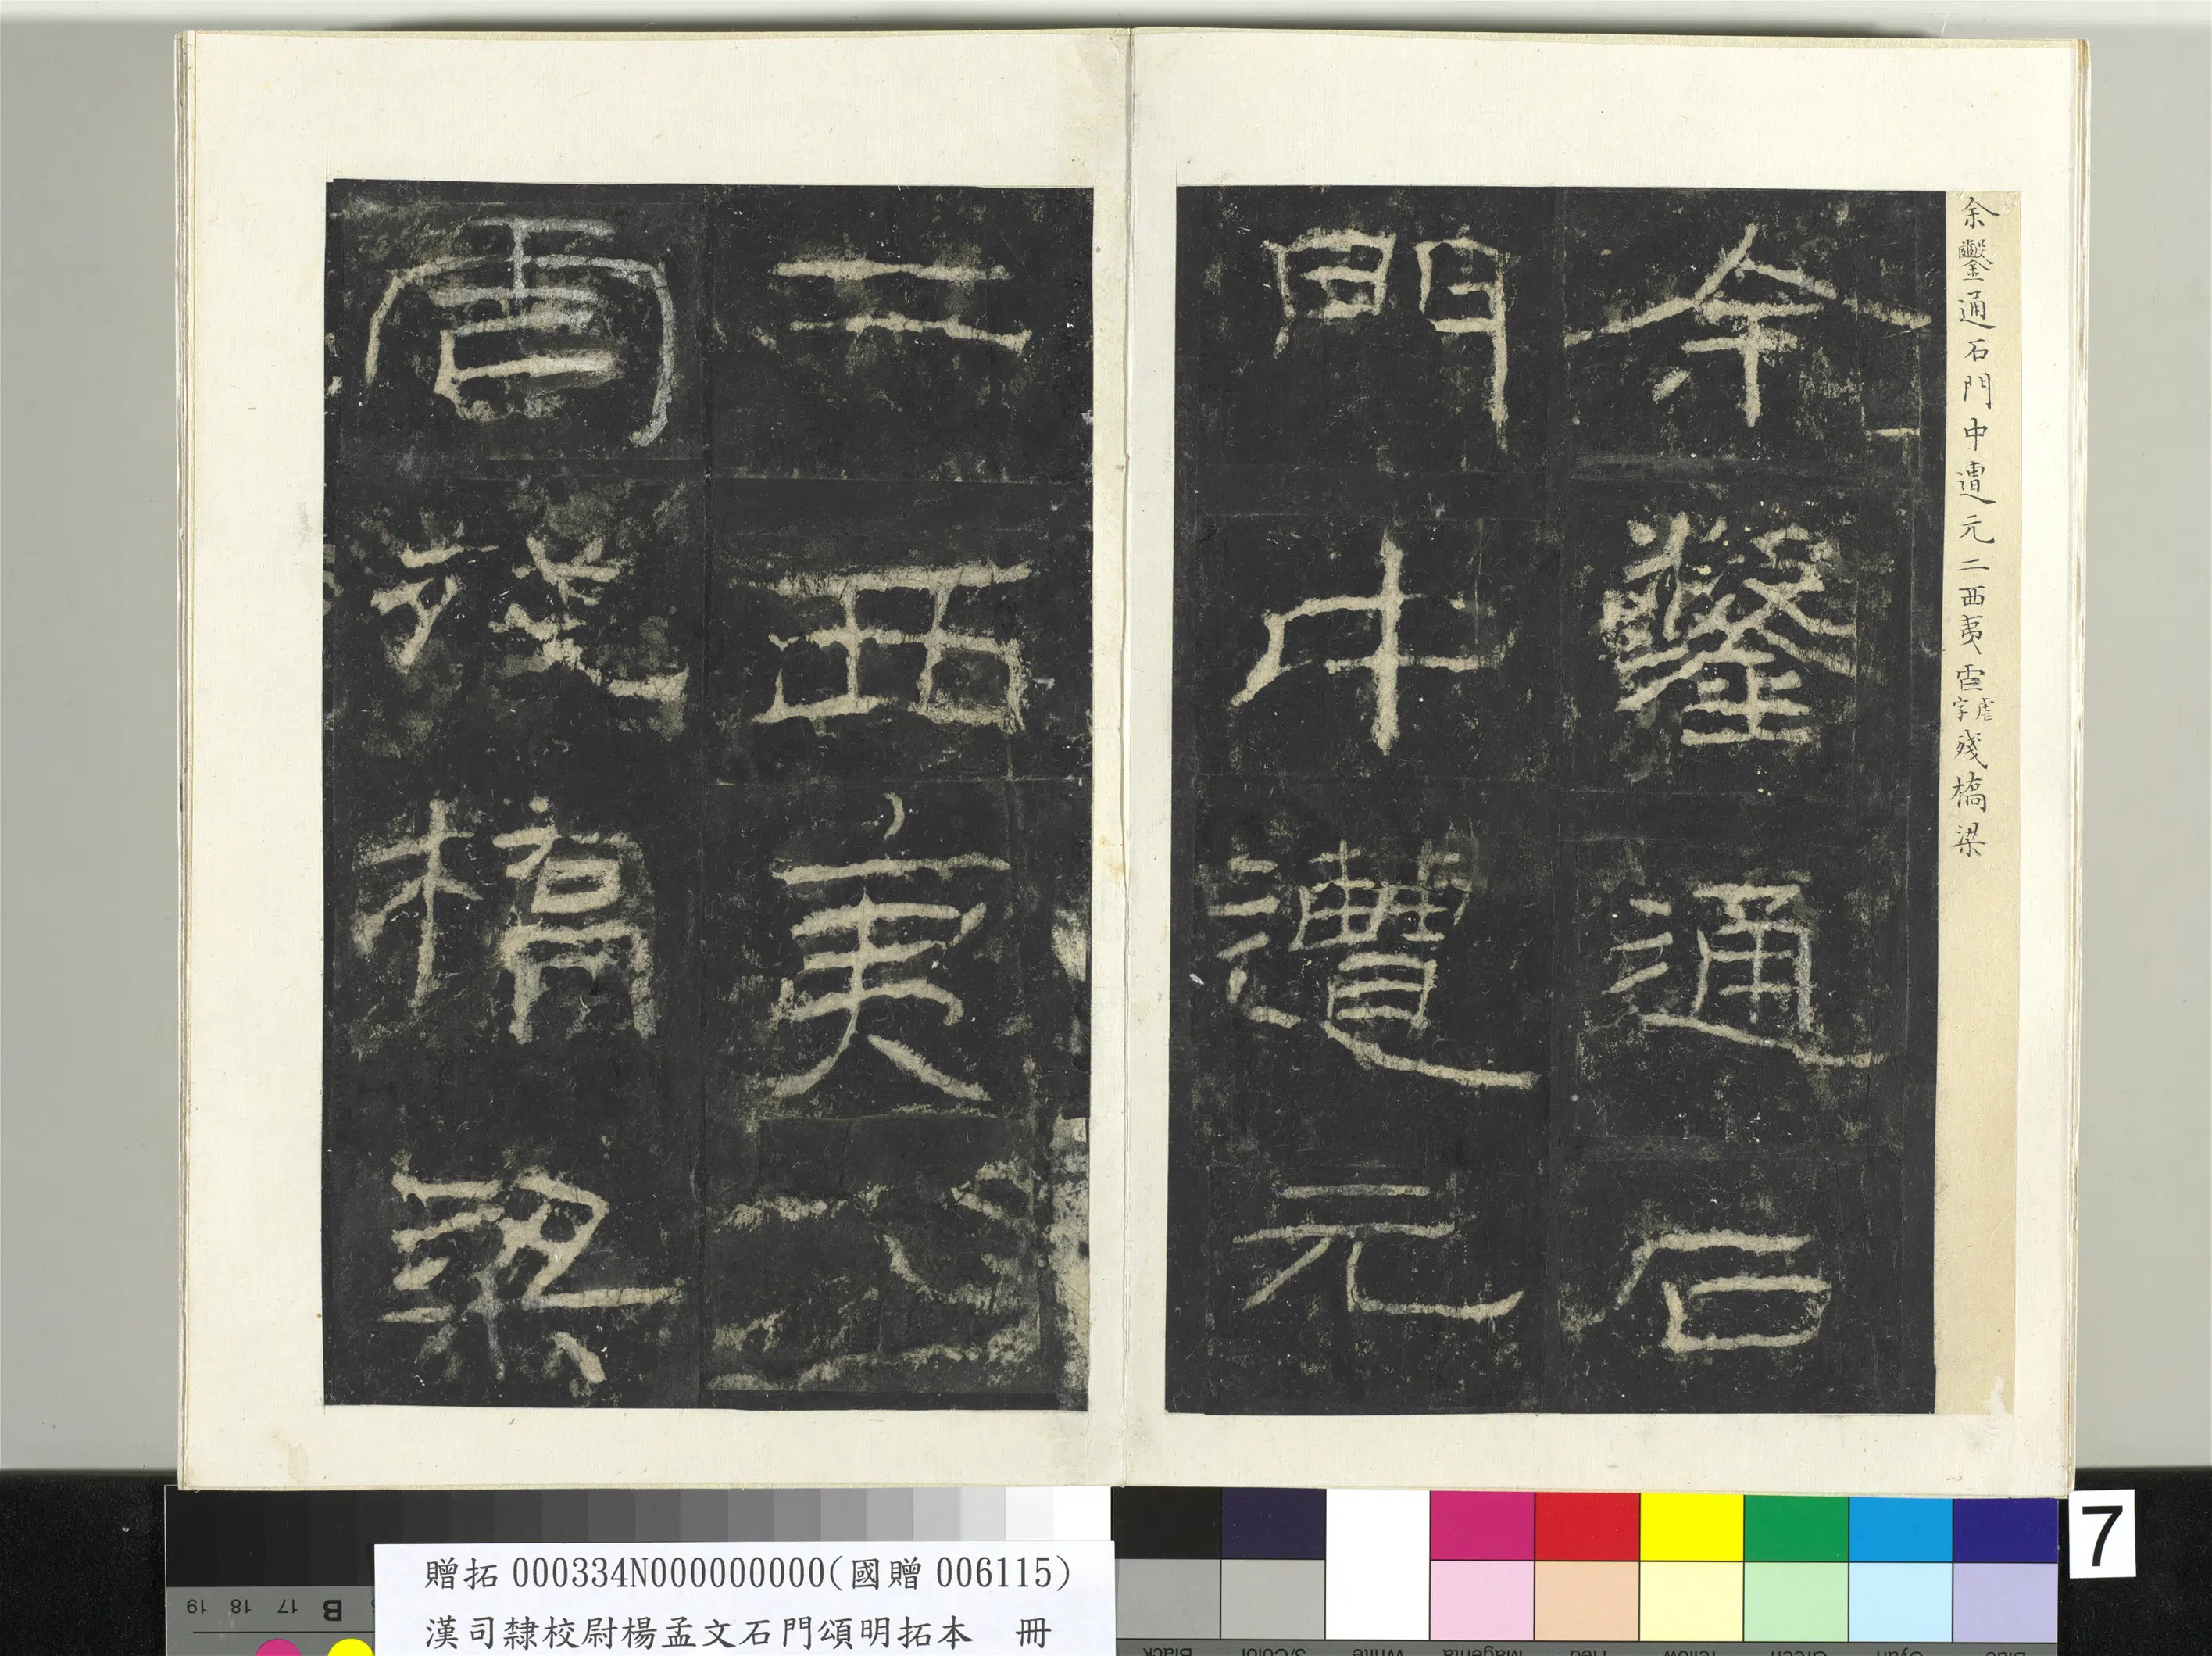 余鑿通石門中遭元二西夷虐虐字殘橋梁
余鑿通石
門中遭元
二西夷
虐殘橋梁
贈拓000334N000000000(國贈006115)
漢司隸校尉楊孟文石門頌明拓本 冊
7
19 18 17 B